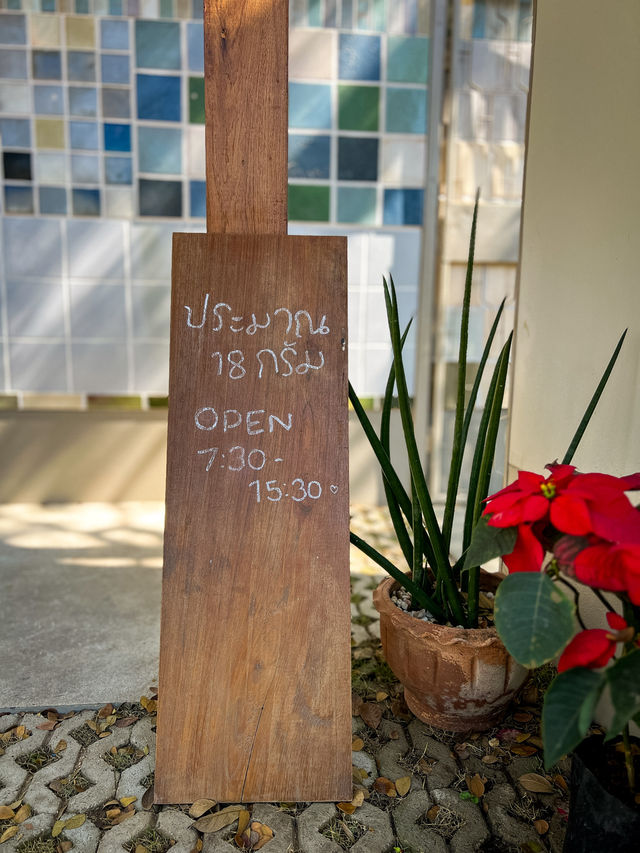 ประมาณ
18 กรัม
OPEN
7:30 -
15:30 ♡